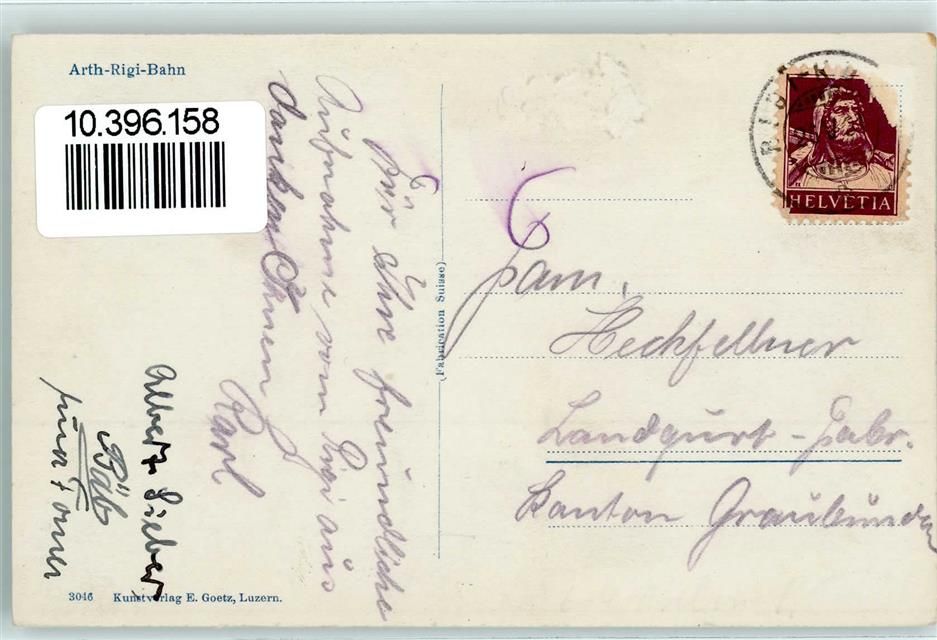 Arth-Rigi-Bahn
10.396.158
Für Ihre freundliche
Aufnahme vom Rigi aus
danken Ihnen
Karl
Albert Sieber
Bäb
(Fabrication Suisse)
HELVETIA
Fam.
Heckfellner
Landqurt-Fabr.
Kanton Graubünden
3046 Kunstverlag E. Goetz, Luzern.